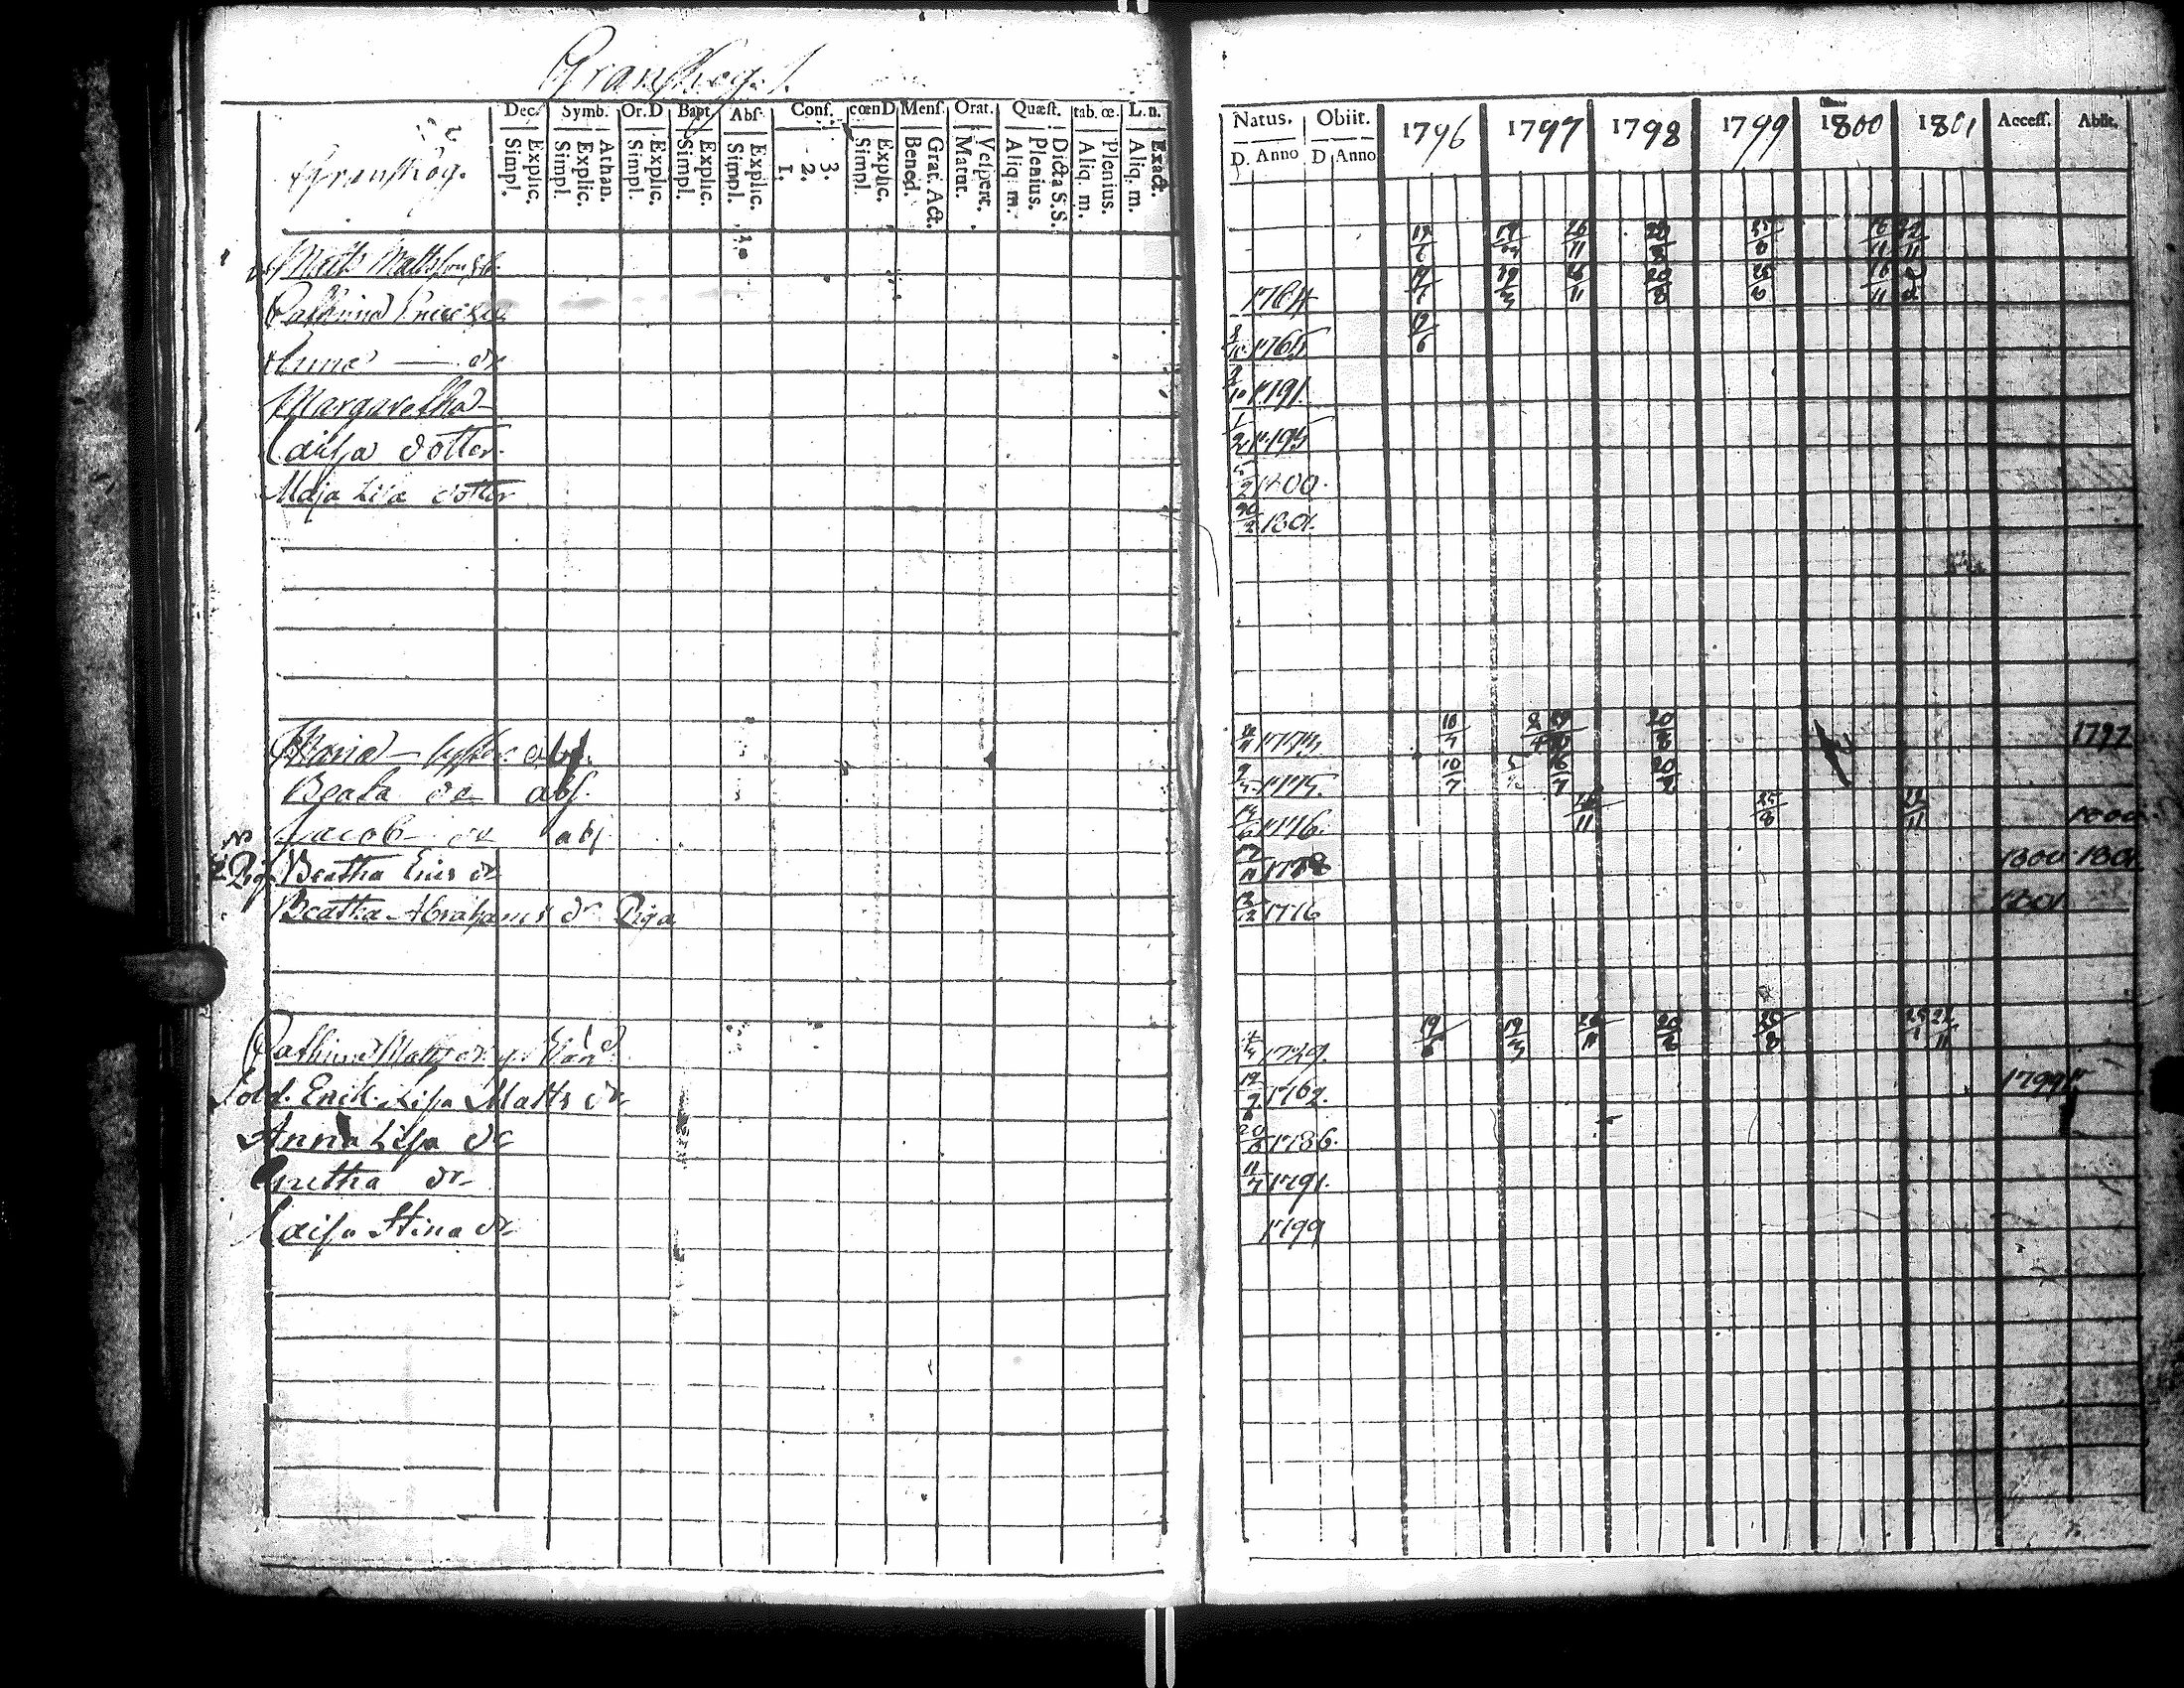 Granskog. 1.
Dec. Symb. Or.D Bapt. Abs. Conf. cœnD Mens. Orat. Quæst. tab. œ. L.n.
Simpl. Explic. Simpl. Explic. Athan. Simpl. Explic. Simpl. Explic. Simpl. Explic. 1. 2. 3. Simpl. Explic. Bened. Grat. Act. Matut. Vespert. Aliq. m. Plenius. Dicta S.S. Aliq. m. Plenius. Aliq. m. Exact.
Granskog.
Matts Mattsson
Cathrina Erics
Anna — dr
Margaretha
Caisa dotter
Maja Lisa dotter
Maria abs.
Beata dr abs.
Jacob abs
Pig. Beatha Erics dr
Beatha Abrahams dr Piga
Cathrina Matts dr
Sold. Erik. Lisa Matts dr
Anna Lisa dr
Gretha dr
Caisa Stina dr
Natus. Obiit. 1796 1797 1798 1799 1800 1801 Access. Abiit.
D. Anno D Anno
19/6 19/3 26/11 20/8 25/8 16/11 22/11
1764 19/6 19/3 26/11 20/8 25/8 16/11
1765 19/6
1791.
1/2 1795
1800.
20/2 1801.
1773 10/7 20/8 1797
1775. 10/7 16/7 20/8
1776. 26/11 25/8 22/11 1800
1778 1800 1801
1776 1801
1729. 19/6 19/3 26/11 20/8 25/8 25/1 22/11
19/7 1762. 1799
20/8 1786.
11/7 1791.
1799